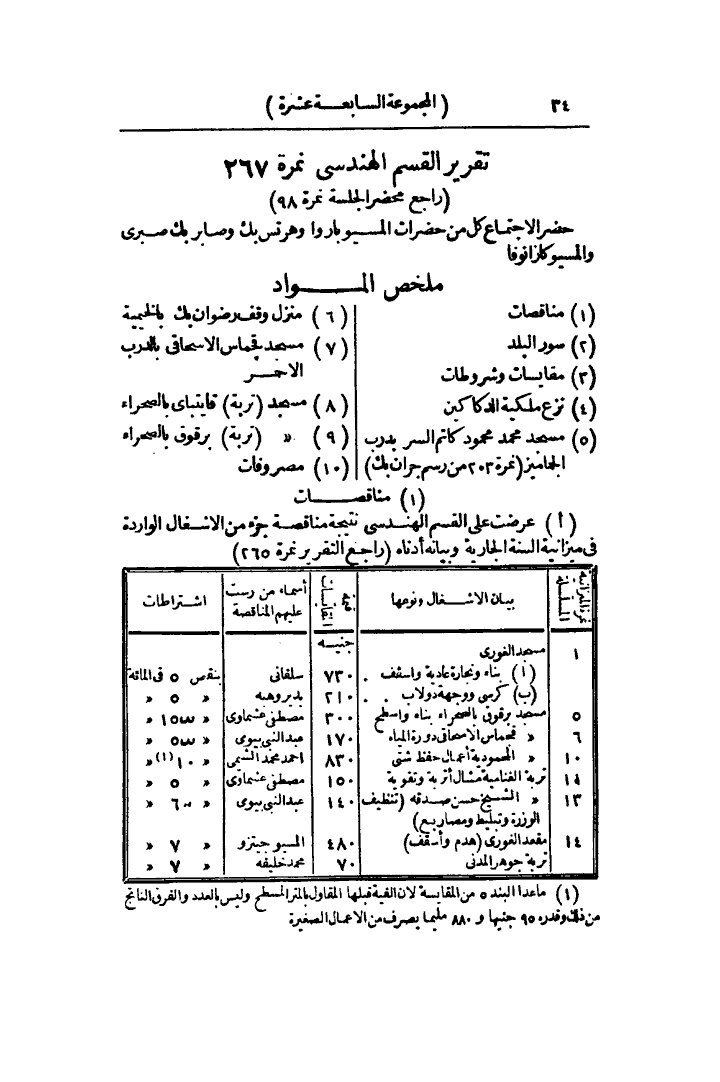 ٣٤ (المجموعة السابعة عشرة)
تقرير القسم الهندسى نمرة ٢٦٧
(راجع محضر الجلسة نمرة ٩٨)
حضر الاجتماع كل من حضرات المسيو باروا وهرتس بك وصابر بك صبرى
والمسيو كازانوفا
ملخص المواد
(١) مناقصات
(٢) سور البلد
(٣) مقايسات وشروطات
(٤) نزع ملكية الدكاكين
(٥) مسجد محمد محمود كاتم السر بدرب
الجاميز (نمرة ٢٠٣ من رسم جران بك)
(٦) منزل وقف رضوان بك بالخيمية
(٧) مسجد قجماس الاسحاقى بالدرب
الاحمر
(٨) مسجد (تربة) قايتباى بالصحراء
(٩) » (تربة) برقوق بالصحراء
(١٠) مصروفات
(١) مناقصات
(أ) عرضت على القسم الهندسى نتيجة مناقصة جزء من الاشغال الواردة
فى ميزانية السنة الجارية وبيانه أدناه (راجع التقرير نمرة ٢٦٥)
نمر الميزانية المسلسلة | بيان الاشغال ونوعها | قيمة المقايسات | أسماء من رست عليهم المناقصة | اشتراطات
جنيه
١ مسجد الغورى
(١) بناء ونجارة عادية واسقف . ٧٣٠ سلفانى بنقص ٥ فى المائة
(ب) كرسى ووجهة دولاب . . ٢١٠ بدير وهبه » ٥ »
٥ مسجد برقوق بالصحراء بناء واسطح ٣٠٠ مصطفى عشماوى »
٦ » قجماس الاسحاقى دورة المياه ١٧٠ عبد النبى بيومى »
١٠ » المحمودية أعمال حفظ شتى ٨٣٠ احمد محمد الشيمى » ١٠(١) »
١١ تربة الغنامية مشال أتربة وتقوية ١٥٠ مصطفى عشماوى » ٥ »
١٣ » الشيخ حسن صدقه (تنظيف ١٤٠ عبد النبى بيومى »
الوزرة وتبليط ومصاريع)
١٤ مقعد الغورى (هدم وأسقف) ٤٨٠ المسيو جيتزو » ٧ »
تربة جوهر المدنى ٧٠ محمد خليفه » ٧ »
(١) ماعدا البند ٥ من المقايسة لان الفية قبلها المقاول بالمتر المسطح وليس بالعدد والفرق الناتج
من ذلك وقدره ٩٥ جنيها و ٨٨٠ مليما يصرف من الاعمال الصغيرة